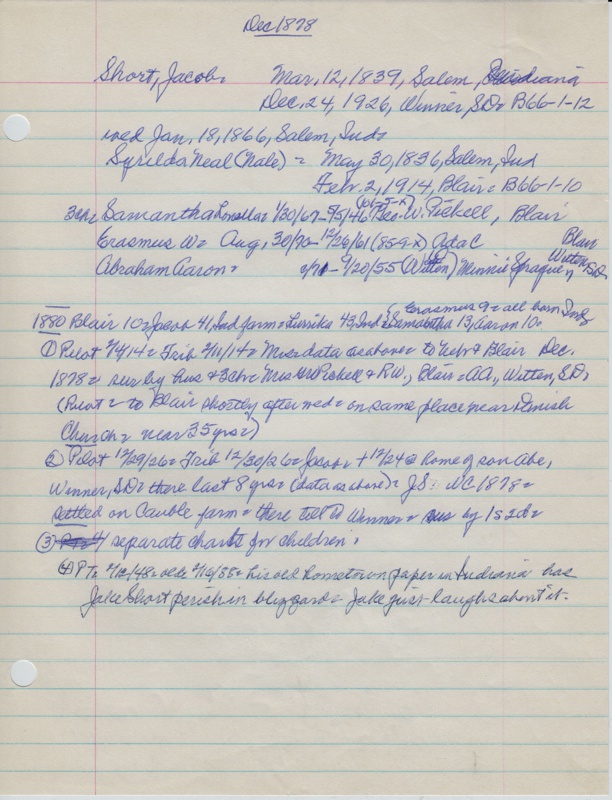 Dec 1878
Short, Jacob = Mar. 12, 1839, Salem, Indiana
Dec. 24, 1926, Winner, S.D. = B66-1-12
wed Jan. 18, 1866, Salem, Ind =
Syrilda Neal (Nale) = May 30, 1836, Salem, Ind
Feb. 2, 1914, Blair = B66-1-10
3ch = Samantha = 1/30/67 - 9/5/46 Geo. W. Pickell, Blair
Erasmus W = Aug, 30/70 - 12/26/61 (859-x) Ada C Blair
Abraham Aaron = /71 - 9/20/55 (Witten) Minnie Sprague, Witten, S.D.
(Erasmus 9 = all born Ind
1880 Blair 10 = Jacob 41, Ind farm = 43, Ind = Samantha 13, Aaron 10 =
① Pilot 2/4/14 = Trib 2/11/14 = Mos. data as above = to Nebr & Blair Dec.
1878 = sur by hus & 3ch = Mrs GW Pickell & RW., Blair = AA., Witten, S.D.
(Pilot = to Blair shortly after wed = on same place near Danish
Church = near 35 yrs =)
② Pilot 12/29/26 = Trib 12/30/26 = Jacob + 12/24 @ home of son Abe,
Winner, S.D. = there last 8 yrs = (data as above) = J.S. WC 1878 =
settled on Cauble farm = there till to Winner = sur by 1s 2d =
③ 4 separate charts for children.
④ PT = 2/12/48 = olde 2/16/55 = his old hometown paper in Indiana has
Jake Short perish in blizzard = Jake just laughs about it.